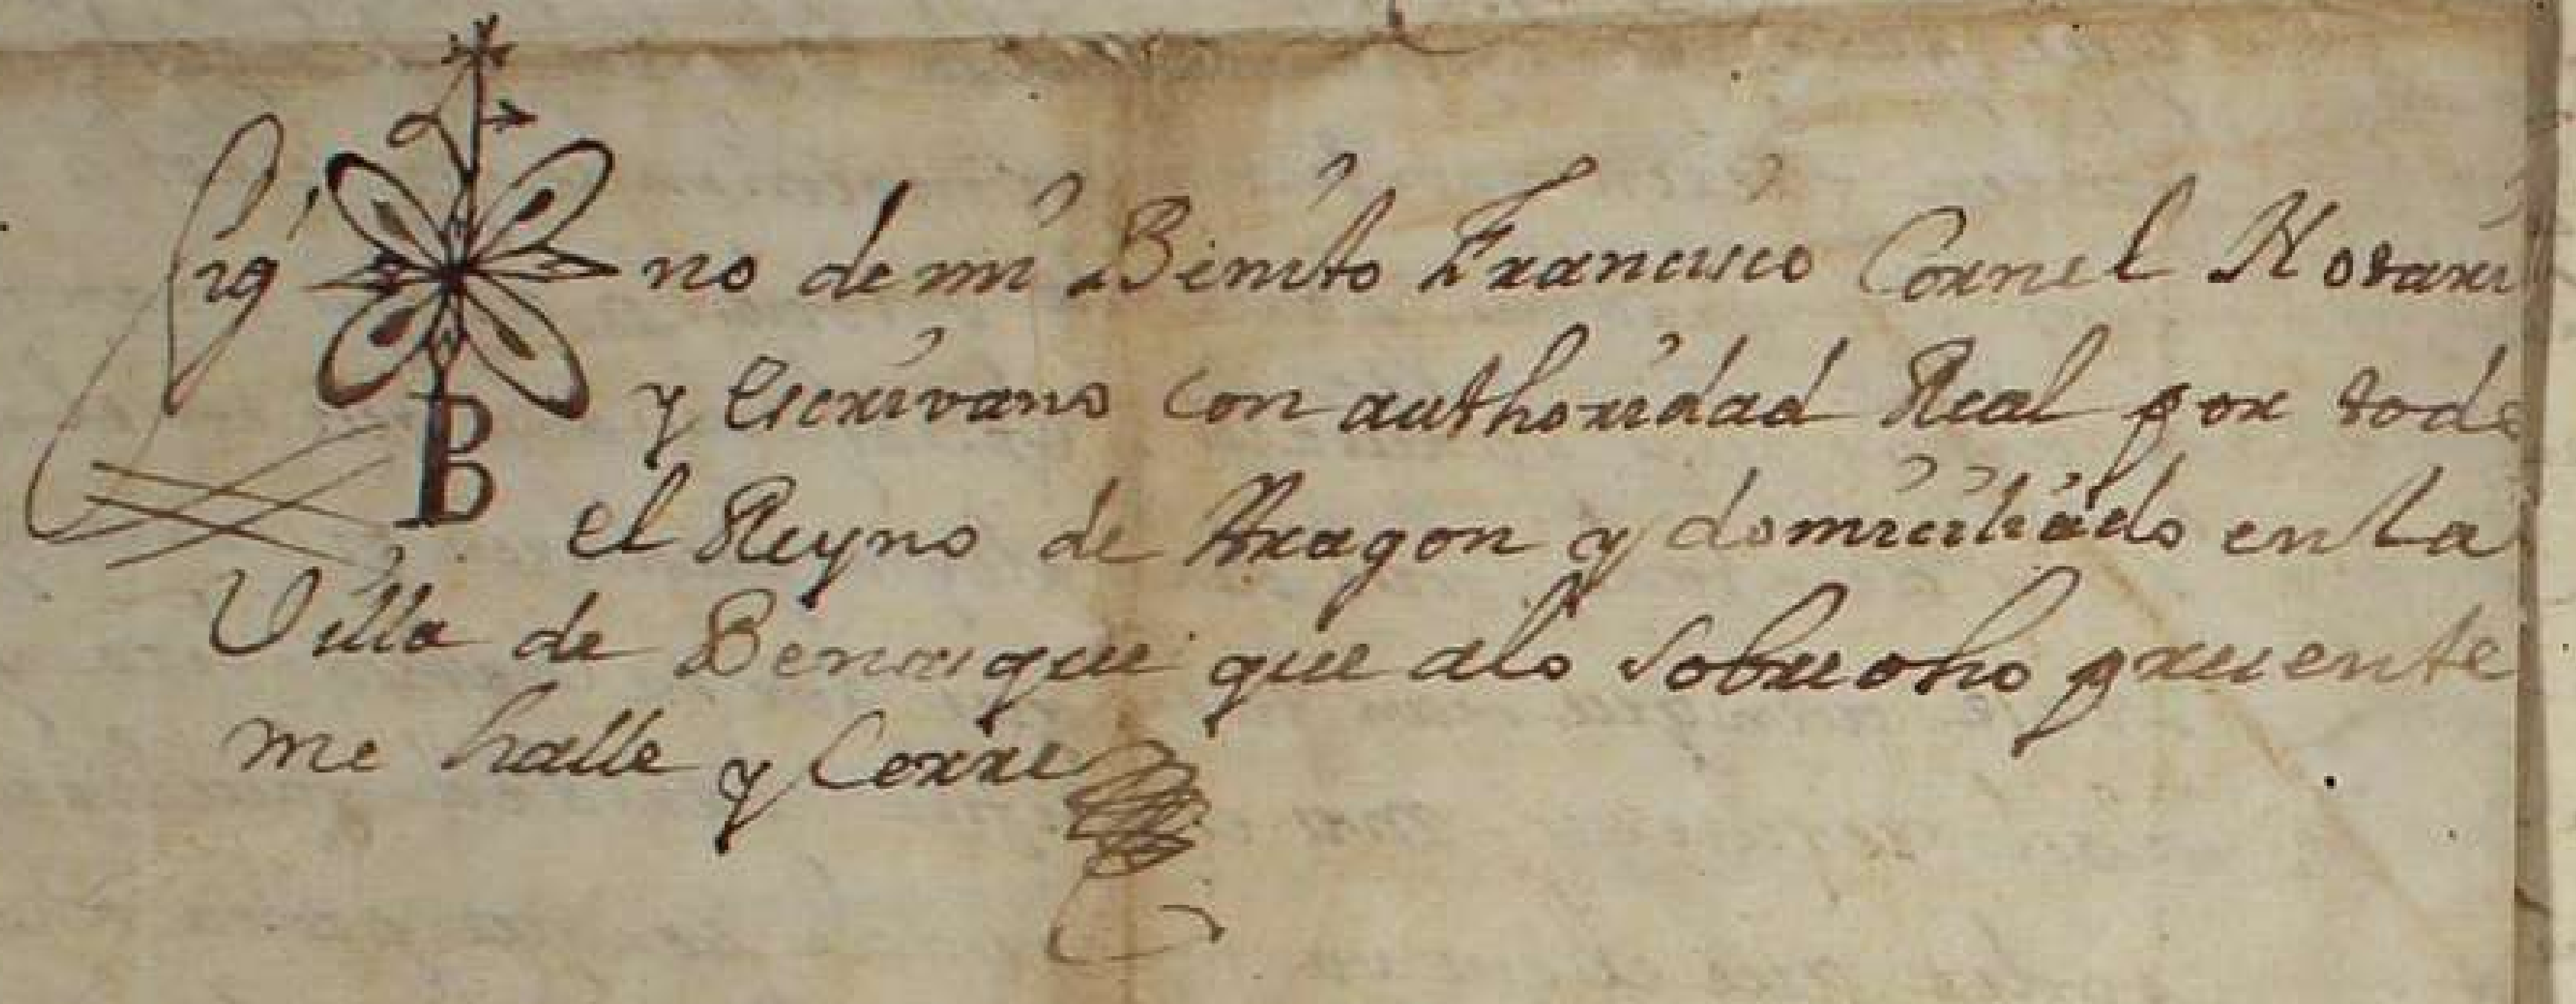 Sig no de mi Benito Francisco Cornel Notari
y escrivano con authoridad Real por todo
B
el Reyno de Aragon y domiciliado en la
Villa de Benasque que a lo sobredho presente
me halle y Cerre